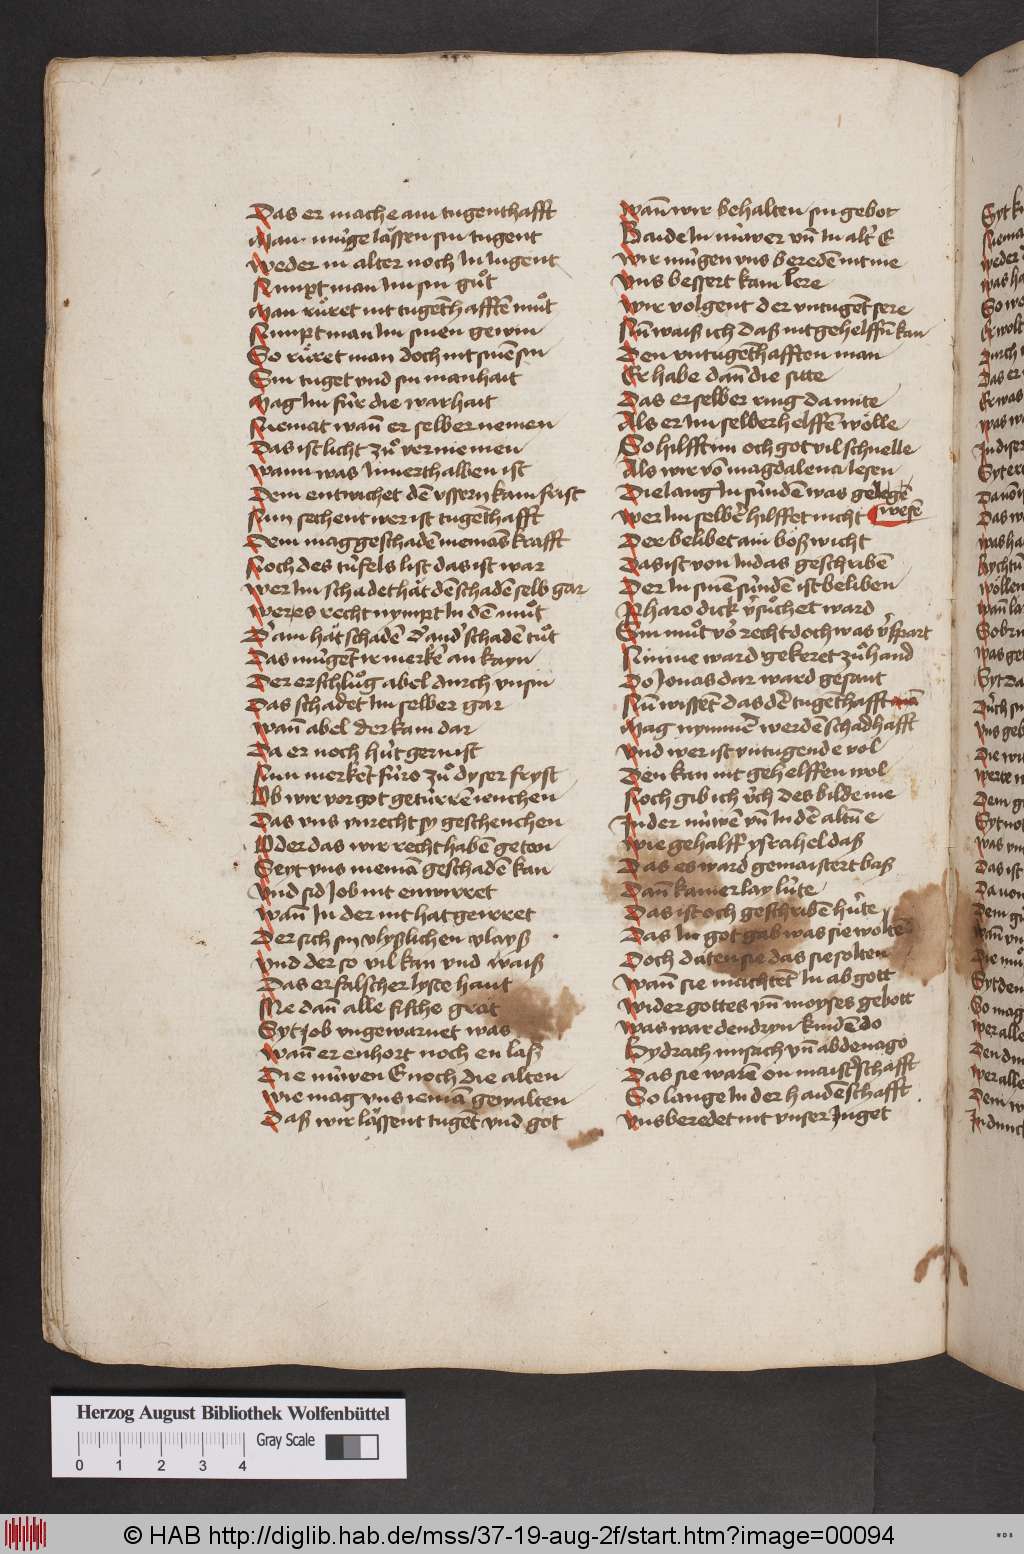 Das er mache ain tugenthafft
Man mùge lăssen sin tugent
Weder in alter noch In Iugent
Nimpt man Im sin gůt
Man růret nit tugēthafftē můt
Nimpt man Im sinen gewin
So růret man doch nit sinē sin
Sin tuget vnd sin manhait
Mag Im fùr die warhait
Niemat wañ er selber nemen
Das ist licht zů vernemen
Wann was Innerthalben ist
Dem entwichet dē vssern kain frist
Nun sechent wer ist tugēthafft
Dem mag geschadē niemās krafft
Noch des tùfels list das ist war
Wer Im schadet hăt dē schadē selb gar
Wer es recht nympt In dē můt
D' ain hăt schadē d' and' schadē tůt
Das mùgēt ir merkē an kayn
Der erschlůg abel durch vnsin
Das schadet Im selber gar
Wañ abel der kam dar
Da er noch hùt gern ist
Nun merket fùro zů dyser fryst
Ob wir vor got getùrrē ienchen
Das vns vnrecht sy geschenchen
Oder das wir recht habē geton
Seyt vns niemā geschadē kan
Vnd sid Job nit enwirret
Wañ In der nit hat gewrret
Der sich sin vlyßlichen vlayß
Vnd der so vil kan vnd waiß
Das er falscher lyste haut
Me dañ alle fische grăt
Syt Job vngewarnet was
Wañ er enhort noch en laß
Die nùwen E noch die alten
Wie mag vns iemā gewalten
Daß wir lăssent tugēt vnd got
Wañ wir behalten sin gebot
Baide In nùwer vñ In alt' E
Wir mùgen vns beredē nit me
Vns bessert kain lere
Wir volgent der vntugēt sere
Nũ waiß ich daß nit gehelffñ kan
Den vntugēthafften man
Er habe dañ die sitte
Das er selber ring da mite
Als er Im selber helffē wölle
So hilfft im och got vil schnelle
Als wir vō magdalena lesen
Die lang In sùndē was gelegē
wesē
Wer Im selbē hilffet nicht
Der belibet ain bößwicht
Das ist von Iudas geschribē
Der In sinē sùndē ist beliben
Pharo dick v'sůchet ward
Sin můt vō recht doch was v'spart
Niniue ward gekeret zů hand
Do Jonas dar ward gesant
Nũ wissēt das dē tugēthafft
Mag nymmē werdē schadhafft
Vnd wer ist vntugende vol
Den kan nit gehelffen wol
Noch gib ich ùch des bilde me
In der nùwē vñ In dē altñ e
Wie gehalff ysrahel daß
Das es ward gemaistert baß
Dañ kainerlay lùte
Das ist och geschribē hùte
Das In got gab was sie woltē
Doch daten sie das sie solten
Wañ sie machtēt In abgott
Wider gottes vñ moyses gebott
Was war den dryn kindē do
Sydrach misach vñ abdenago
Das sie warē on maist'schafft
So lange In der haidēschafft
Vns beredet nit vnser Iuget
Herzog August Bibliothek Wolfenbüttel
Gray Scale
0 1 2 3 4
© HAB http://diglib.hab.de/mss/37-19-aug-2f/start.htm?image=00094